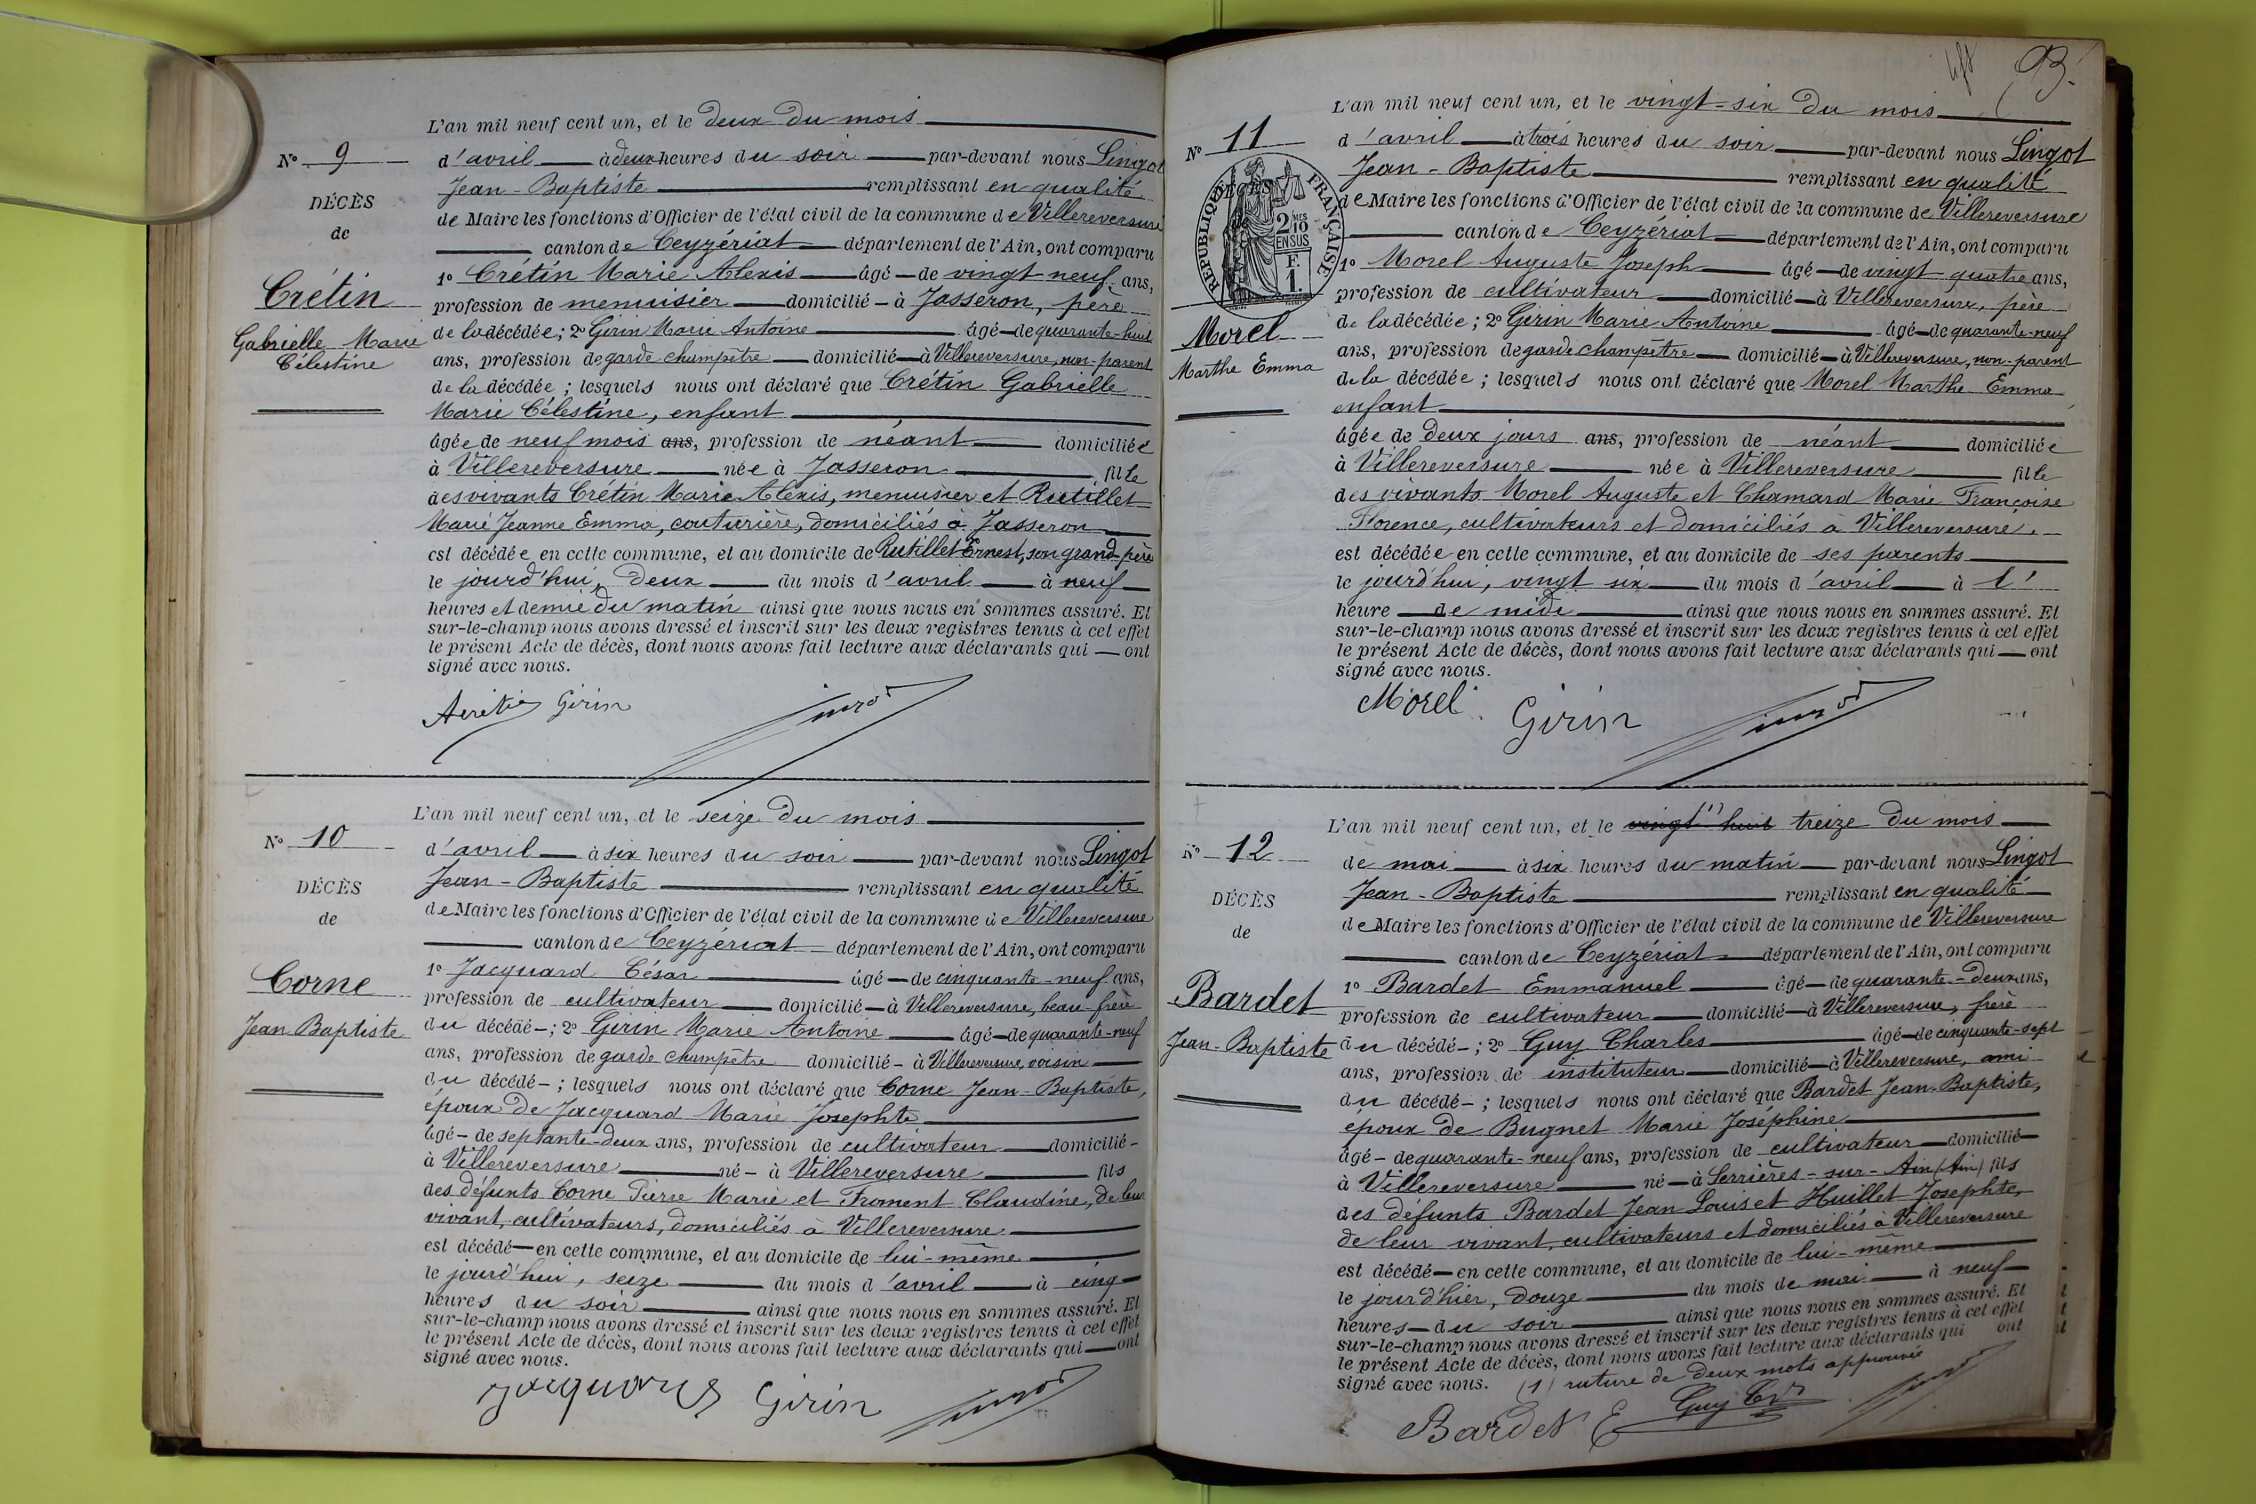 L'an mil neuf cent un, et le deux du mois
N° 9
d'avril à deux heures du soir par-devant nous Lingot
Jean-Baptiste remplissant en qualité
DÉCÈS
de Maire les fonctions d'Officier de l'état civil de la commune de Villereversure
de
canton de Ceyzériat département de l'Ain, ont comparu
1° Crétin Marie Alexis âgé de vingt neuf ans,
Crétin
profession de menuisier domicilié à Jasseron, père
Gabrielle Marie
de la décédée; 2° Girin Marie Antoine âgé de quarante-huit
Célestine
ans, profession de garde champêtre domicilié à Villereversure, non-parent
de la décédée; lesquels nous ont déclaré que Crétin Gabrielle
Marie Célestine, enfant
âgée de neuf mois ans, profession de néant domiciliée
à Villereversure née à Jasseron fille
des vivants Crétin Marie Alexis, menuisier et Rutillet
Marie Jeanne Emma, couturière, domiciliés à Jasseron
est décédée en cette commune, et au domicile de Rutillet Ernest, son grand-père
le jourd'hui, deux du mois d'avril à neuf
heures et demie du matin ainsi que nous nous en sommes assuré. Et
sur-le-champ nous avons dressé et inscrit sur les deux registres tenus à cet effet
le présent Acte de décès, dont nous avons fait lecture aux déclarants qui ont
signé avec nous.
Girin
L'an mil neuf cent un, et le seize du mois
N° 10
d'avril à six heures du soir par-devant nous Lingot
Jean-Baptiste remplissant en qualité
DÉCÈS
de Maire les fonctions d'Officier de l'état civil de la commune de Villereversure
de
canton de Ceyzériat département de l'Ain, ont comparu
1° Jacquard César âgé de cinquante-neuf ans,
Corne
profession de cultivateur domicilié à Villereversure, beau-frère
Jean-Baptiste
du décédé; 2° Girin Marie Antoine âgé de quarante-neuf
ans, profession de garde champêtre domicilié à Villereversure, voisin
du décédé; lesquels nous ont déclaré que Corne Jean-Baptiste,
époux de Jacquard Marie Josephte
âgé de septante-deux ans, profession de cultivateur domicilié
à Villereversure né à Villereversure fils
des défunts Corne Pierre Marie et Froment Claudine, de leur
vivant, cultivateurs, domiciliés à Villereversure
est décédé en cette commune, et au domicile de lui-même
le jourd'hui, seize du mois d'avril à cinq
heures du soir ainsi que nous nous en sommes assuré. Et
sur-le-champ nous avons dressé et inscrit sur les deux registres tenus à cet effet
le présent Acte de décès, dont nous avons fait lecture aux déclarants qui ont
signé avec nous.
Jacquard Girin
93
L'an mil neuf cent un, et le vingt-six du mois
N° 11
d'avril à trois heures du soir par-devant nous Lingot
Jean-Baptiste remplissant en qualité
DÉCÈS
RÉPUBLIQUE FRANÇAISE
2 MES 10 EN SUS
F. 1.
de Maire les fonctions d'Officier de l'état civil de la commune de Villereversure
canton de Ceyzériat département de l'Ain, ont comparu
1° Morel Auguste Joseph âgé de vingt quatre ans,
profession de cultivateur domicilié à Villereversure, père
Morel
de la décédée; 2° Girin Marie Antoine âgé de quarante-neuf
Marthe Emma
ans, profession de garde champêtre domicilié à Villereversure, non-parent
de la décédée; lesquels nous ont déclaré que Morel Marthe Emma
enfant
âgée de deux jours ans, profession de néant domiciliée
à Villereversure née à Villereversure fille
des vivants Morel Auguste et Chamard Marie Françoise
Florence, cultivateurs et domiciliés à Villereversure.
est décédée en cette commune, et au domicile de ses parents
le jourd'hui, vingt six du mois d'avril à l'
heure de midi ainsi que nous nous en sommes assuré. Et
sur-le-champ nous avons dressé et inscrit sur les deux registres tenus à cet effet
le présent Acte de décès, dont nous avons fait lecture aux déclarants qui ont
signé avec nous.
Morel Girin
L'an mil neuf cent un, et le vingt huit (1) treize du mois
N° 12
de mai à six heures du matin par-devant nous Lingot
Jean-Baptiste remplissant en qualité
DÉCÈS
de Maire les fonctions d'Officier de l'état civil de la commune de Villereversure
de
canton de Ceyzériat département de l'Ain, ont comparu
1° Bardet Emmanuel âgé de quarante-deux ans,
Bardet
profession de cultivateur domicilié à Villereversure, frère
Jean-Baptiste
du décédé; 2° Guy Charles âgé de cinquante-sept
ans, profession de instituteur domicilié à Villereversure, ami
du décédé; lesquels nous ont déclaré que Bardet Jean-Baptiste,
époux de Bugnet Marie Joséphine
âgé de quarante-neuf ans, profession de cultivateur domicilié
à Villereversure né à Serrières-sur-Ain (Ain) fils
des défunts Bardet Jean Louis et Huillet Josephte,
de leur vivant, cultivateurs et domiciliés à Villereversure
est décédé en cette commune, et au domicile de lui-même
le jourd'hier, douze du mois de mai à neuf
heures du soir ainsi que nous nous en sommes assuré. Et
sur-le-champ nous avons dressé et inscrit sur les deux registres tenus à cet effet
le présent Acte de décès, dont nous avons fait lecture aux déclarants qui ont
signé avec nous. (1) rature de deux mots approuvée
Bardet E Guy